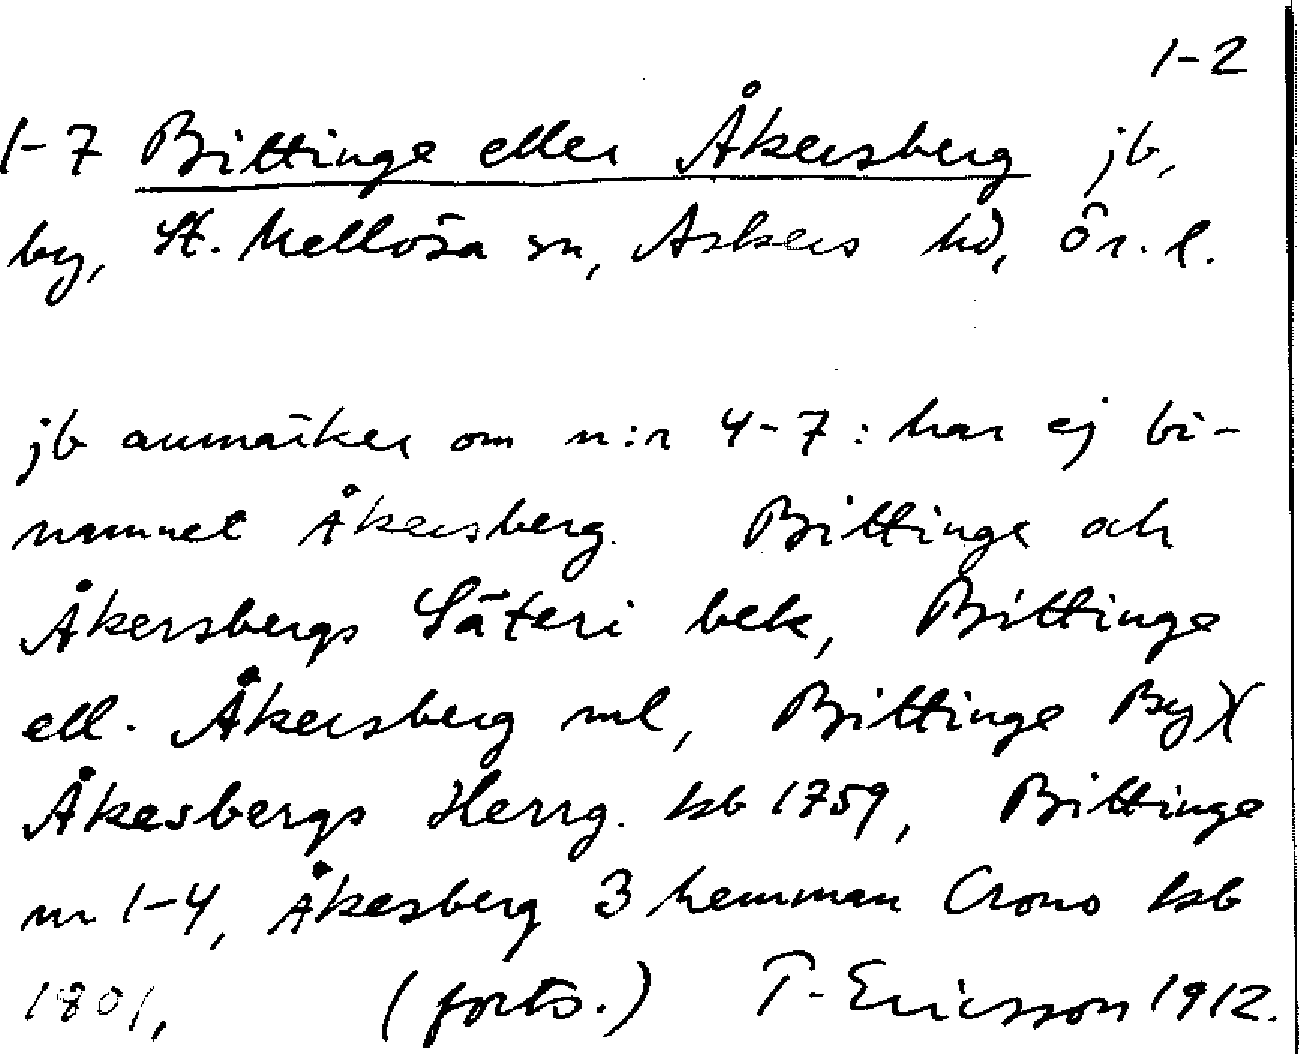 1-2
1-7 Bittinge eller Åkersberg jb,
by, St. Mellösa sn, Askers hd, Ör. l.
jb anmärker om n:r 4-7: har ej bi-
namnet Åkersberg. Bittinge och
Åkersbergs Säteri bek, Bittinge
ell. Åkersberg ml, Bittinge By)(
Åkesbergs Herrg. hsb 1759, Bittinge
nr 1-4, Åkesberg 3 hemman Crono hsb
1801, (forts.) T. Ericsson 1912.